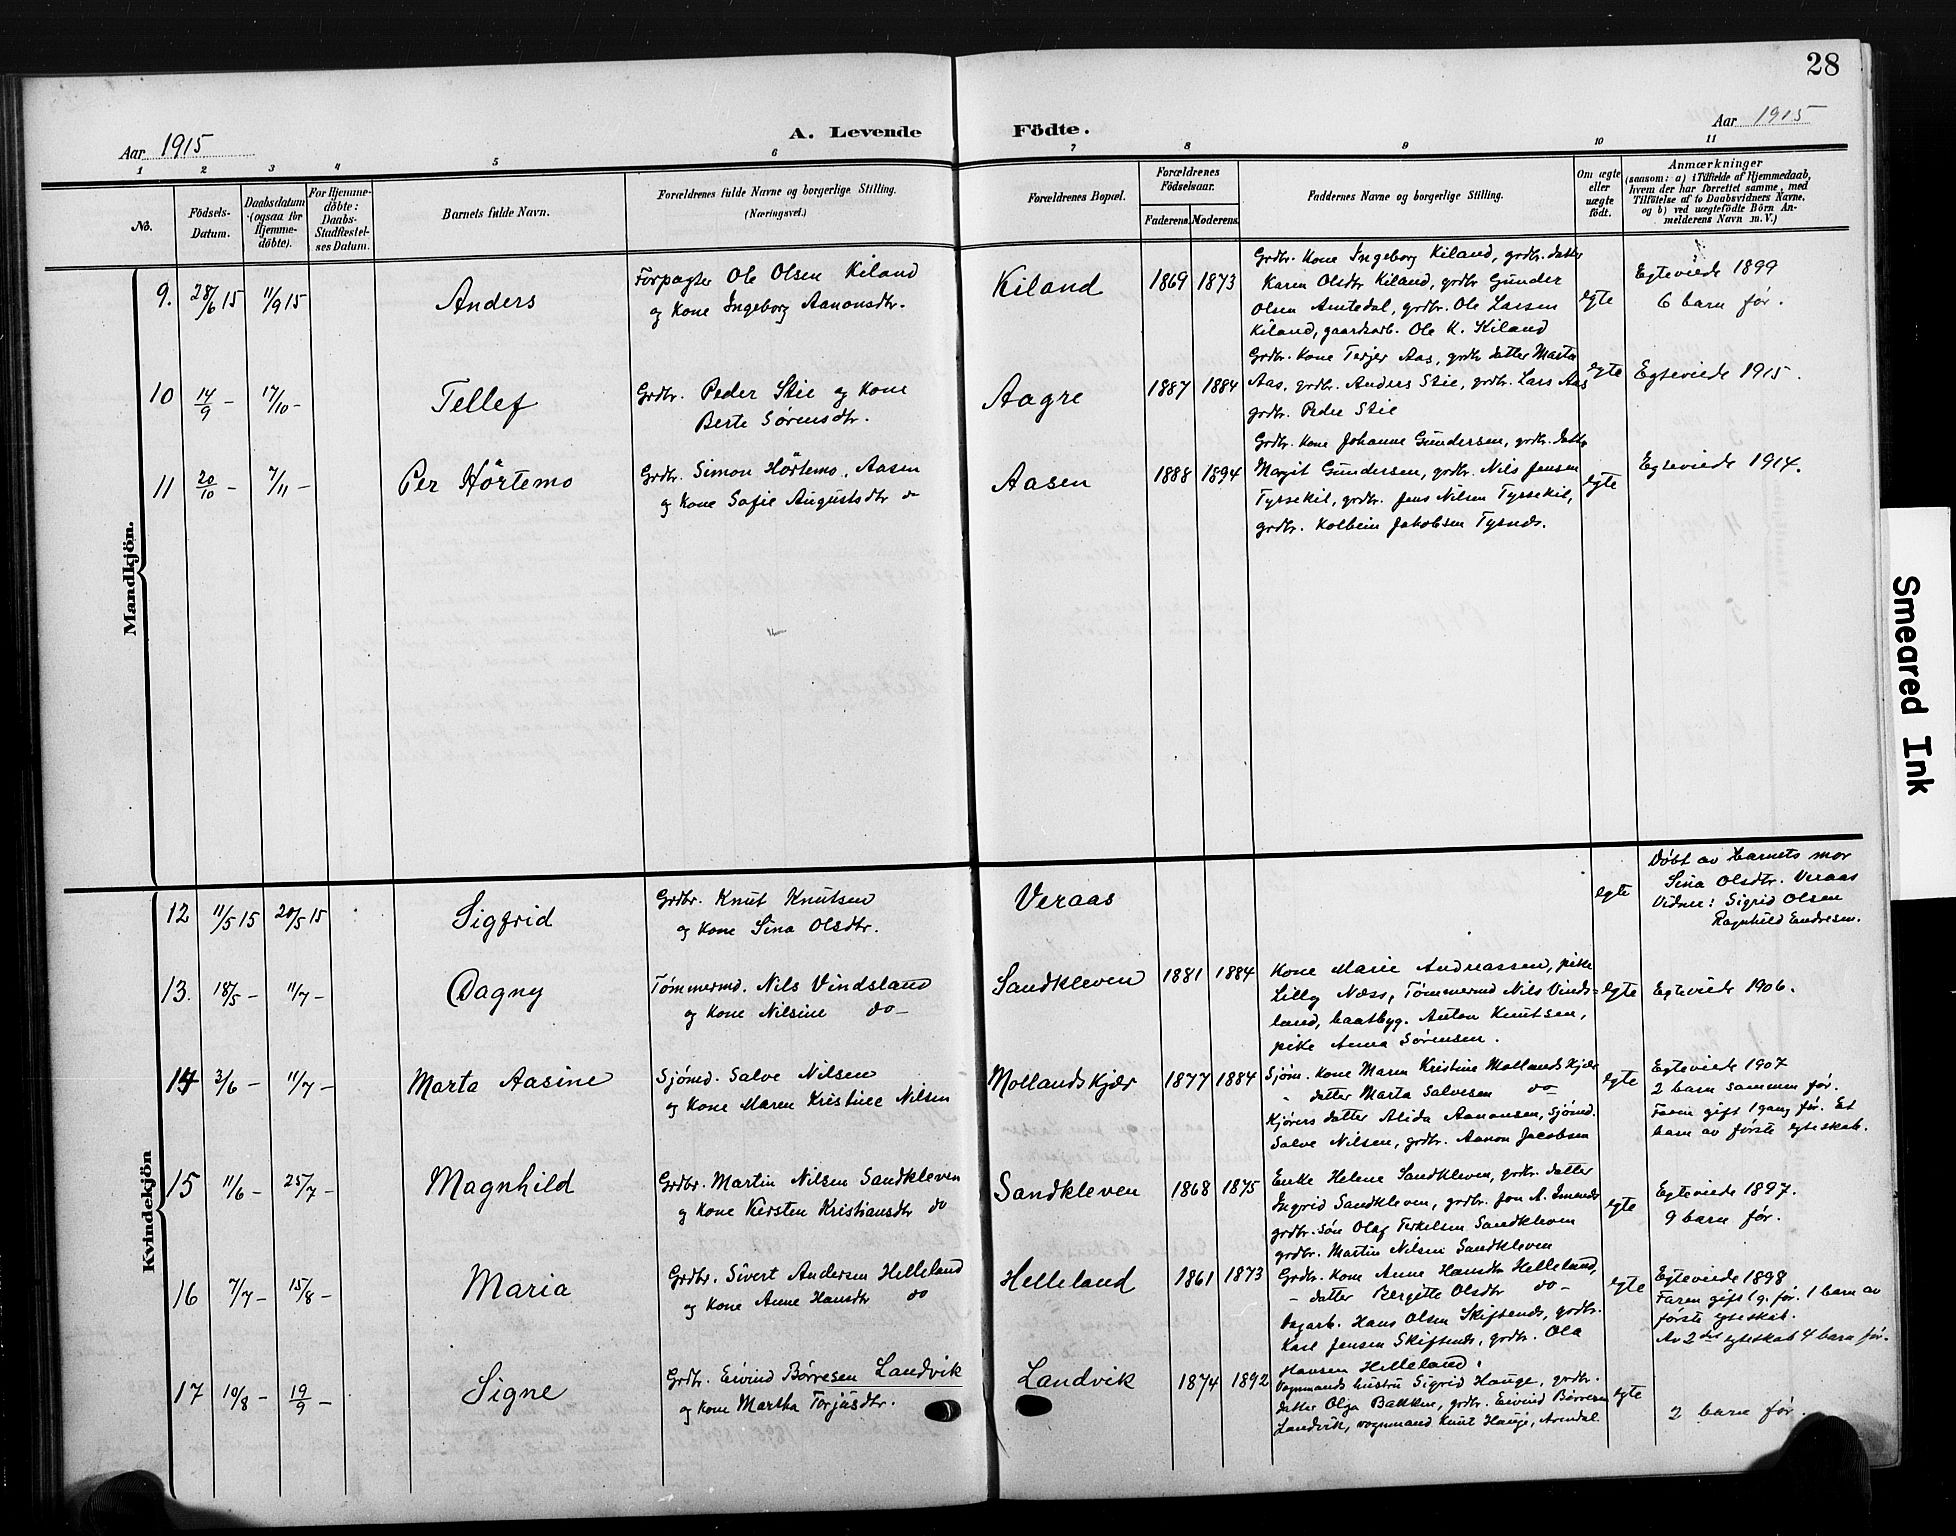 28
Aar 1915
A. Levende Födte.
Aar 1915
1 2 3 4 5 6 7 8 9 10 11
No.
Födsels-
Datum.
Daabsdatum
(ogsaa for
Hjemme-
döbte).
For Hjemme-
döbte:
Daabs-
Stadfæstel-
ses Datum.
Barnets fulde Navn.
Forældrenes fulde Navne og borgerlige Stilling.
(Næringsvei.)
Forældrenes Bopæl.
Forældrenes
Födselsaar.
Faderens.
Moderens.
Faddernes Navne og borgerlige Stilling.
Om ægte
eller
uægte
födt.
Anmærkninger
(saasom: a) i Tilfælde af Hjemmedaab,
hvem der har forrettet samme, med
Tilföielse af to Daabsvidners Navne,
og b) ved uægtefödte Börn An-
melderens Navn m. V.)
Mandkjön.
9. 28/6 15 11/9 15 Anders
Forpagter Ole Olsen Kiland
og Kone Ingeborg Aanonsdtr.
Kiland 1869 1873
Grdbr. Kone Ingeborg Kiland, grdbr. datter
Karen Olsdtr Kiland, grdbr Gunder
Olsen Amtedal, grdbr. Ole Larsen
Kiland, gaardsarb. Ole K. Kiland
egte
Egteviede 1899
6 barn før.
10 14/9 – 17/10 – Tellef
Grdbr. Peder Stie og Kone
Berte Sørensdtr.
Aagre 1887 1884
Grdbr. Kone Terjer Aas, grdbr datter Marta
Aas, grdbr. Anders Stie, grdbr. Lars Aas
grdbr. Peder Stie
egte
Egteviede 1915.
11 20/10 – 7/11 – Per Hörtemo
Grdbr. Simon Hörtemo, Aasen
og Kone Sofie Augustsdtr do
Aasen 1888 1894
Grdbr. Kone Johanne Gundersen, grdbr. datter
Margit Gundersen, grdbr. Nils Jensen
Tyssekil, grdbr. Jens Nilsen Tyssekil,
grdbr. Kolbein Jakobsen
egte
Egteviede 1914.
Kvindekjön
12 11/5 15 20/5 15 Sigfrid
Grdbr. Knut Knutsen
og Kone Sina Olsdtr.
Veraas
egte
Døbt av barnets mor
Sina Olsdtr. Veraas
Vidner: Sigrid Olsen
Ragnhild Endresen.
13. 18/5 – 11/7 – Dagny
Tømmermd. Nils Vindsland
og Kone Nilsine do –
Sandkleven 1881 1884
Kone Marie Andreassen, pike
Lilly Næss, Tømmermd Nils Vinds=
land, baatbyg. Anton Knutsen,
pike Anna Sørensen.
egte
Egteviede 1906.
14 3/6 – 11/7 – Marta Aasine
Sjømd. Salve Nilsen
og Kone Maren Kristine Nilsen
Mollandskjær 1877 1884
Sjøm. Kone Maren Kristine Mollandskjær
" datter Marta Salvesen do
Kjørers datter Alida Aanonsen, Sjømd.
Salve Nilsen, grdbr. Aanon Jacobsen
egte
Egteviede 1907
2 barn sammen før.
Faren gift 1 gang før. Et
barn av første egteskab.
15 11/6 – 25/7 – Magnhild
Grdbr. Martin Nilsen Sandkleven
og Kone Kersten Kristiansdtr do
Sandkleven 1868 1875
Enke Helene Sandkleven, grdbr. datter
Ingrid Sandkleven, grdbr. Jon A.
grdbr. søn Olaf Terkelsen Sandkleven
grdbr. Martin Nilsen Sandkleven
egte
Egteviede 1897.
9 barn før.
16 7/7 – 15/8 – Maria
Grdbr. Sivert Andersen Helleland
og Kone Anne Hansdtr do
Helleland 1861 1873
Grdbr. Kone Anne Hansdtr Helleland,
– datter Bergitte Olsdtr do –
Dagarb. Hans Olsen Skiftenes, grdbr.
Karl Jensen Skiftenes, grdbr. Ola
Hansen Helleland.
egte
Egteviede 1898
Faren gift 1 g. før. 1 barn av
første egteskab.
Av 2det egteskab 4 barn før.
17 10/8 – 19/9 – Signe
Grdbr. Eivind Børresen Landvik
og Kone Martha Torjusdtr.
Landvik 1874 1892
Vognmands hustru Sigrid Hauge, grdbr.
datter Olga Bakken, grdbr. Eivind Børresen
Landvik, vognmand Knut Hauge, Arendal
egte
2 barn før.
Smeared Ink